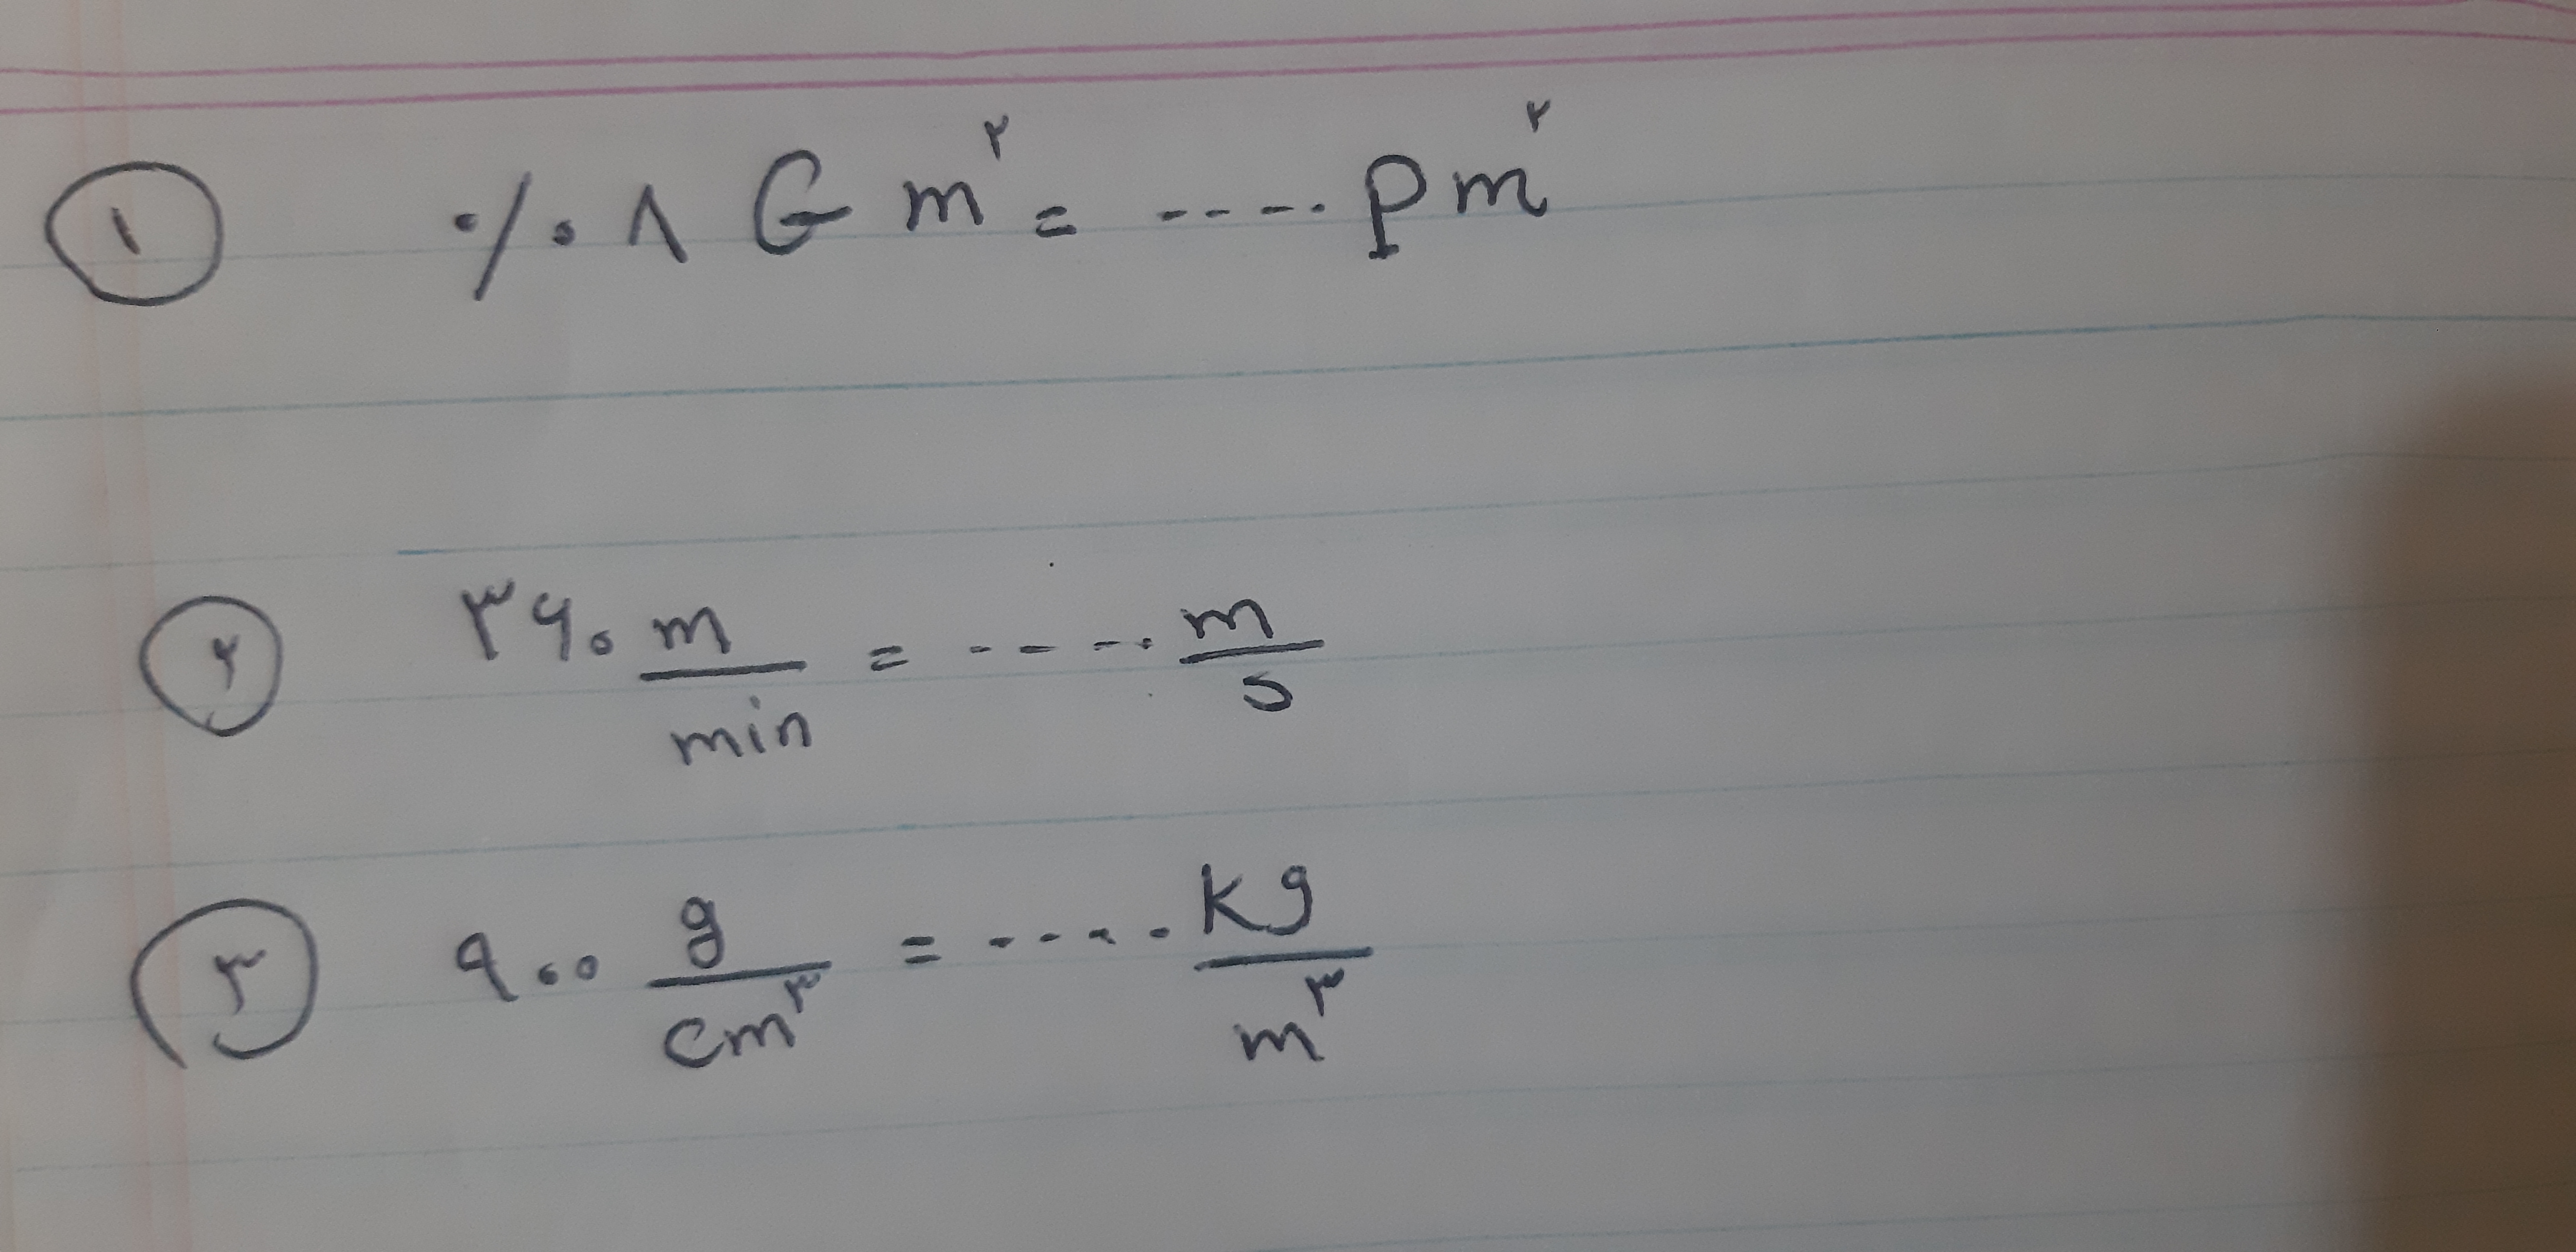 ۱ ۰/۰۸ G m^۲ = ..... Pm^۲
۲ ۳۶۰ m/min = ..... m/s
۳ ۹۰۰ g/cm^۳ = ..... kg/m^۳